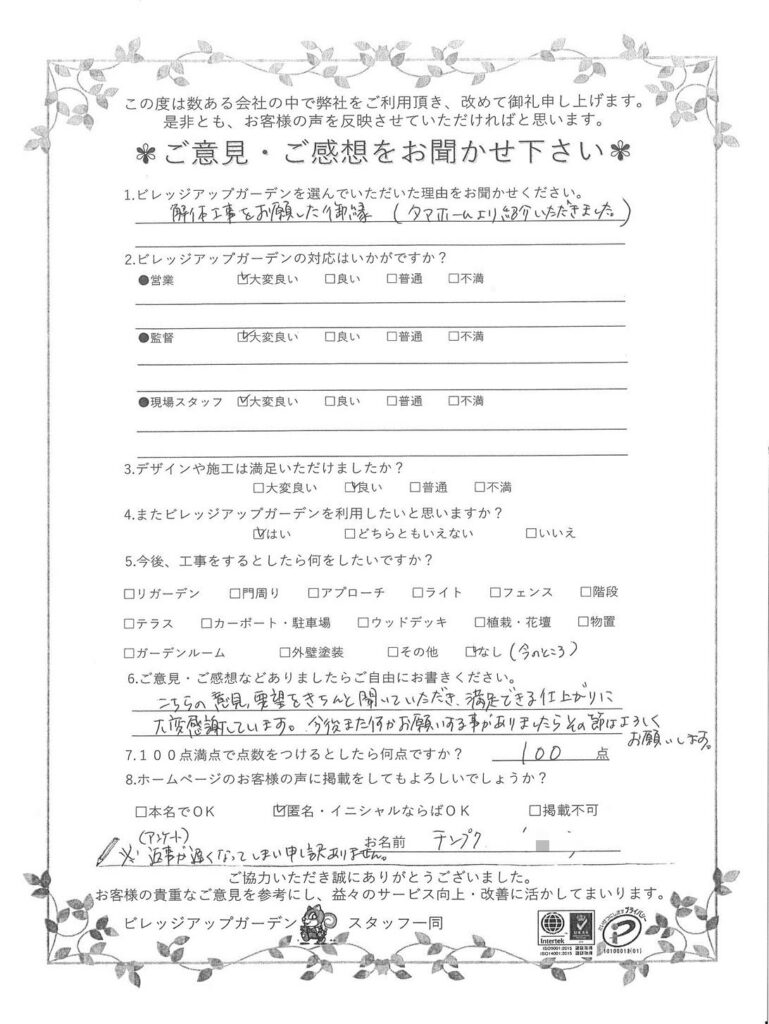 この度は数ある会社の中で弊社をご利用頂き、改めて御礼申し上げます。
是非とも、お客様の声を反映させていただければと思います。
✽ご意見・ご感想をお聞かせ下さい✽
1.ビレッジアップガーデンを選んでいただいた理由をお聞かせください。
解体工事をお願した御縁 (タマホームより紹介いただきました。)
2.ビレッジアップガーデンの対応はいかがですか?
●営業 ☑大変良い □良い □普通 □不満
●監督 ☑大変良い □良い □普通 □不満
●現場スタッフ ☑大変良い □良い □普通 □不満
3.デザインや施工は満足いただけましたか?
□大変良い ☑良い □普通 □不満
4.またビレッジアップガーデンを利用したいと思いますか?
☑はい □どちらともいえない □いいえ
5.今後、工事をするとしたら何をしたいですか?
□リガーデン □門周り □アプローチ □ライト □フェンス □階段
□テラス □カーポート・駐車場 □ウッドデッキ □植栽・花壇 □物置
□ガーデンルーム □外壁塗装 □その他 ☑なし (今のところ)
6.ご意見・ご感想などありましたらご自由にお書きください。
こちらの意見、要望をきちんと聞いていただき、満足できる仕上がりに
大変感謝しています。今後また何かお願いする事がありましたらその節はよろしく
お願いします。
7.100点満点で点数をつけるとしたら何点ですか? 100 点
8.ホームページのお客様の声に掲載をしてもよろしいでしょうか?
□本名でOK ☑匿名・イニシャルならばOK □掲載不可
(アンケート)
※返事が遅くなってしまい申し訳ありません。
お名前 テンプク
ご協力いただき誠にありがとうございました。
お客様の貴重なご意見を参考にし、益々のサービス向上・改善に活かしてまいります。
ビレッジアップガーデン スタッフ一同
Intertek
ISO9001:2015
ISO14001:2015
プライバシー
10100013(01)